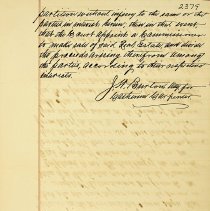 2379
partition without injury to the same or the
parties in interest herein, then in that event
that the Court appoint a Commissioner
to make sale of said Real Estate and divide
the proceeds arising therefrom among
the parties, according to their respective
interests.
J. A. Burton Atty for
Catherine